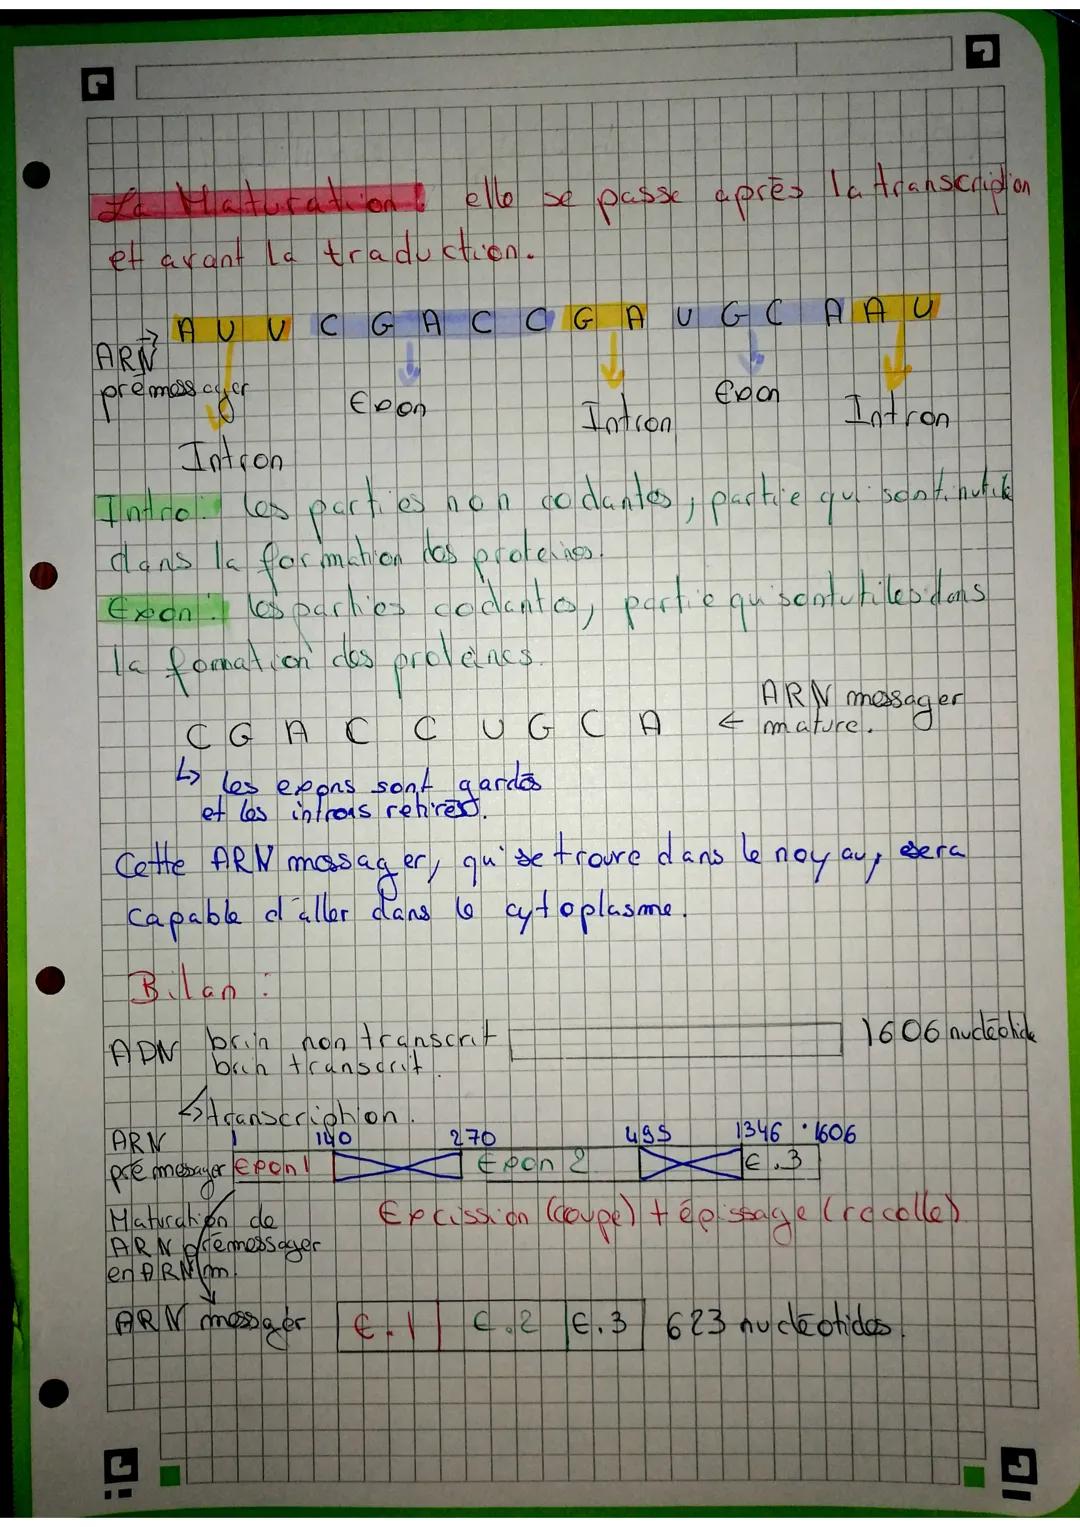 La Maturation : elle se passe après la transcription
et avant la traduction.
ARN prémessager → A U U C G A C C G A U G C A A U
Intron Exon Intron Exon Intron
Intro : les parties non codantes, partie qui sont inutile
dans la formation des proteines.
Exon : les parties codantes, partie qui sont utiles dans
la formation des proteines.
C G A C C U G C A ← ARN messager mature.
↳ les exons sont gardés
et les introns retirés.
Cette ARN messager, qui se trouve dans le noyau, sera
capable d'aller dans le cytoplasme.
Bilan :
ADN brin non transcrit 1606 nucléotide
brin transcrit.
↳ transcription.
1 140 270 495 1346 1606
ARN prémessager Exon 1 Exon 2 E.3
Maturation de
ARN prémessager
en ARNm
Excission (coupe) + épissage (recolle)
ARN messager E.1 E.2 E.3 623 nucléotides.